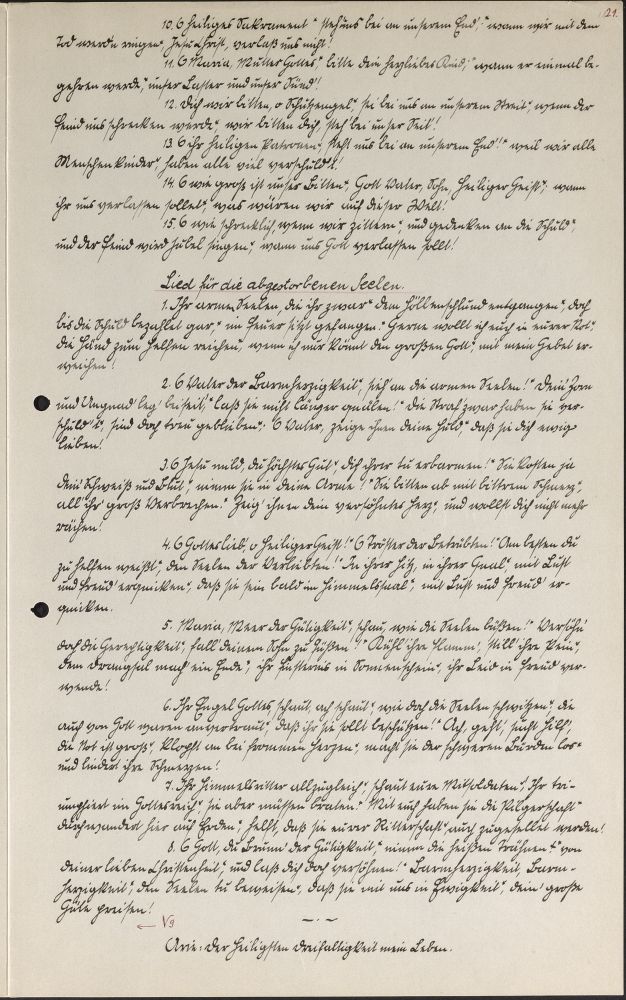 121.
10. O heiliges Sakrament" steh uns bei an unserem End'," wann wir mit dem
Tod werden ringen," Jesu Christ, verlaß uns nicht!
11. O Maria, Mutter Gottes," bitte dein herzliebes Kind," wann er einmal be-
gehren werde," unser Laster und unser Sünd'!
12. Dich wir bitten, o Schutzengel," sei bei uns an unserem Streit," wenn der
Feind uns schrecken werde," wir bitten dich, steh' bei unser Seit'!
13. O ihr heiligen Patronen," steht uns bei an unserem End'!" weil wir alle
Menschenkinder," haben alle viel verschuld't!
14. O wie groß ist unser Bitten," Gott Vater, Sohn, heiliger Geist," wann
ihr uns verlassen sollet," was wären wir auf dieser Welt!
15. O wie schrecklich, wenn wir zittern," und gedenken an die Schuld,"
und der Feind wird Jubel singen," wann uns Gott verlassen sollt!
Lied für die abgestorbenen Seelen.
1. Ihr armen Seelen, die ihr zwar" dem Höllenschlund entgangen," doch
bis die Schuld bezahlet gar," im Feuer sitzt gefangen." Gerne wollt ich euch in eurer Not,"
die Händ zum Helfen reichen, wenn ich nur könnt den großen Gott," mit mein Gebet er-
weichen!
2. O Vater der Barmherzigkeit," sieh' an die armen Seelen!" Dein Zorn
und Ungnad' leg' beiseit'," laß sie nicht länger quälen!" Die Straf' zwar haben sie ver-
schuld't," sind doch treu geblieben;" O Vater, zeige ihnen deine Huld," daß sie dich ewig
lieben!
3. O Jesu mild, du höchstes Gut," dich ihrer tu erbarmen!" Sie kosten ja
dein Schweiß und Blut," nimm sie in deine Arme!" Sie bitten ab mit bittrem Schmerz,"
all' ihr groß Verbrechen." Zeig' ihnen dein versöhntes Herz," und wollst dich nicht mehr
rächen!
4. O Gotteslieb', o heiliger Geist!" O Tröster der Betrübten!" Am besten du
zu helfen weißt," den Seelen der Verliebten!" In ihrer Hitz, in ihrer Qual," mit Lust
und Freud' erquicken," daß sie sein bald im Himmelssaal," mit Lust und Freud' er-
quicken.
5. Maria, Meer der Gütigkeit," schau, wie die Seelen büßen!" Versöhn'
doch die Gerechtigkeit," fall' deinem Sohn zu Füßen!" Kühl' ihre Flamm', still' ihre Pein,"
dem Drangsal mach' ein Ende," ihr Finsternis in Sonnenschein," ihr Leid in Freud' ver-
wende!
6. Ihr Engel Gottes schaut, ach schaut," wie doch die Seelen schwitzen," die
euch von Gott waren anvertraut," daß ihr sie sollt beschützen!" Ach, geht, sucht Hilf',
die Not ist groß," klopft an bei frommen Herzen," macht sie der schweren Bürden los"
und lindert ihre Schmerzen!
7. Ihr Himmelsritter allzugleich," schaut eure Mitsoldaten!" Ihr tri-
umphiert im Gottesreich," sie aber müssen braten." Mit euch haben sie die Pilgerschaft"
durchwandert hier auf Erden," helft, daß sie eurer Ritterschaft," auch zugesellet werden!
8. O Gott, du Brunn' der Gütigkeit," nimm die heißen Tränen!" von
deiner lieben Christenheit," und laß dich doch versöhnen!" Barmherzigkeit, Barm-
herzigkeit," den Seelen tu beweisen," daß sie mit uns in Ewigkeit," dein' große
Güte preisen!
Arie: Der heiligsten Dreifaltigkeit mein Leben.